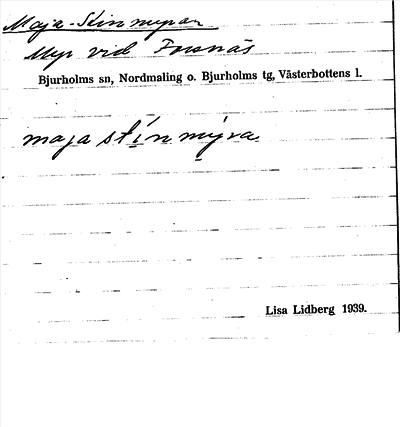 Maja-Stinmyran
Myr vid Forsnäs
Bjurholms sn, Nordmaling o. Bjurholms tg, Västerbottens l.
maja stín mýra
Lisa Lidberg 1939.